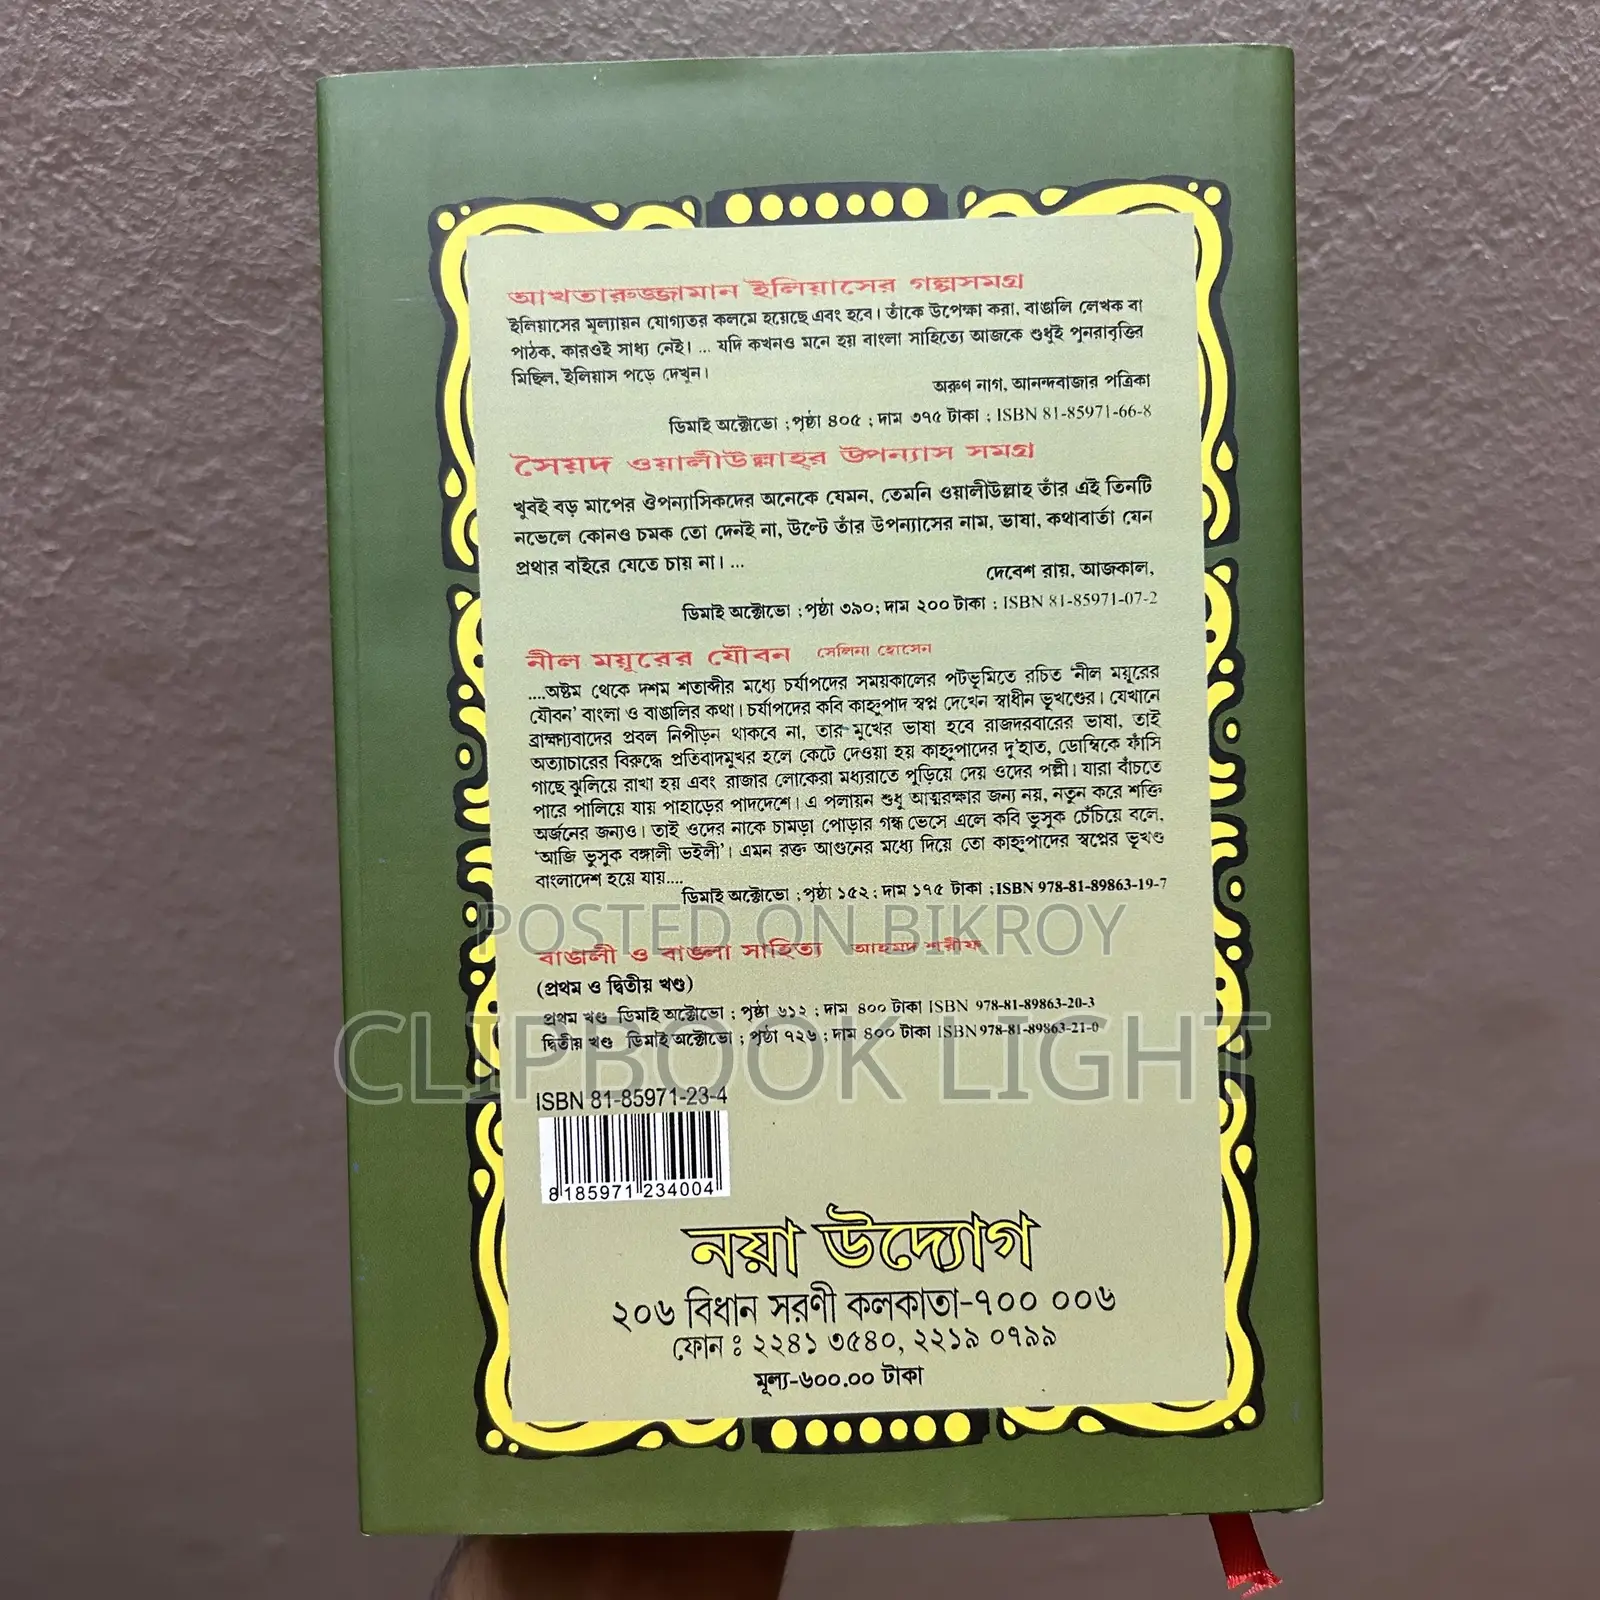 আখতারুজ্জামান ইলিয়াসের গল্পসমগ্র
ইলিয়াসের মূল্যায়ন যোগ্যতর কলমে হয়েছে এবং হবে। তাঁকে উপেক্ষা করা, বাঙালি লেখক বা
পাঠক, কারওই সাধ্য নেই। ... যদি কখনও মনে হয় বাংলা সাহিত্যে আজকে শুধুই পুনরাবৃত্তির
মিছিল, ইলিয়াস পড়ে দেখুন।
অরুণ নাগ, আনন্দবাজার পত্রিকা
ডিমাই অক্টোভো ; পৃষ্ঠা ৪০৫ ; দাম ৩৭৫ টাকা ; ISBN 81-85971-66-8
সৈয়দ ওয়ালীউল্লাহ্‌র উপন্যাস সমগ্র
খুবই বড় মাপের ঔপন্যাসিকদের অনেকে যেমন, তেমনি ওয়ালীউল্লাহ তাঁর এই তিনটি
নভেলে কোনও চমক তো দেনই না, উল্টে তাঁর উপন্যাসের নাম, ভাষা, কথাবার্তা যেন
প্রথার বাইরে যেতে চায় না। ...
দেবেশ রায়, আজকাল,
ডিমাই অক্টোভো ; পৃষ্ঠা ৩৯০; দাম ২০০ টাকা ; ISBN 81-85971-07-2
নীল ময়ূরের যৌবন সেলিনা হোসেন
....অষ্টম থেকে দশম শতাব্দীর মধ্যে চর্যাপদের সময়কালের পটভূমিতে রচিত 'নীল ময়ূরের
যৌবন' বাংলা ও বাঙালির কথা। চর্যাপদের কবি কাহ্নুপাদ স্বপ্ন দেখেন স্বাধীন ভূখণ্ডের। যেখানে
ব্রাহ্মণ্যবাদের প্রবল নিপীড়ন থাকবে না, তার মুখের ভাষা হবে রাজদরবারের ভাষা, তাই
অত্যাচারের বিরুদ্ধে প্রতিবাদমুখর হলে কেটে দেওয়া হয় কাহ্নুপাদের দু'হাত, ডোম্বিকে ফাঁসি
গাছে ঝুলিয়ে রাখা হয় এবং রাজার লোকেরা মধ্যরাতে পুড়িয়ে দেয় ওদের পল্লী। যারা বাঁচতে
পারে পালিয়ে যায় পাহাড়ের পাদদেশে। এ পলায়ন শুধু আত্মরক্ষার জন্য নয়, নতুন করে শক্তি
অর্জনের জন্যও। তাই ওদের নাকে চামড়া পোড়ার গন্ধ ভেসে এলে কবি ভুসুক চেঁচিয়ে বলে,
'আজি ভুসুক বঙ্গালী ভইলী'। এমন রক্ত আগুনের মধ্যে দিয়ে তো কাহ্নুপাদের স্বপ্নের ভূখণ্ড
বাংলাদেশ হয়ে যায়....
ডিমাই অক্টোভো ; পৃষ্ঠা ১৫২ ; দাম ১৭৫ টাকা ; ISBN 978-81-89863-19-7
POSTED ON BIKROY
বাঙালী ও বাঙলা সাহিত্য আহমদ শরীফ
(প্রথম ও দ্বিতীয় খণ্ড)
প্রথম খণ্ড ডিমাই অক্টোভো ; পৃষ্ঠা ৬১২ ; দাম ৪০০ টাকা ISBN 978-81-89863-20-3
দ্বিতীয় খণ্ড ডিমাই অক্টোভো ; পৃষ্ঠা ৭২৬ ; দাম ৪০০ টাকা ISBN 978-81-89863-21-0
CLIPBOOK LIGHT
ISBN 81-85971-23-4
8185971234004
নয়া উদ্যোগ
২০৬ বিধান সরণী কলকাতা-৭০০ ০০৬
ফোন : ২২৪১ ৩৫৪০, ২২১৯ ০৭৯৯
মূল্য-৬০০.০০ টাকা